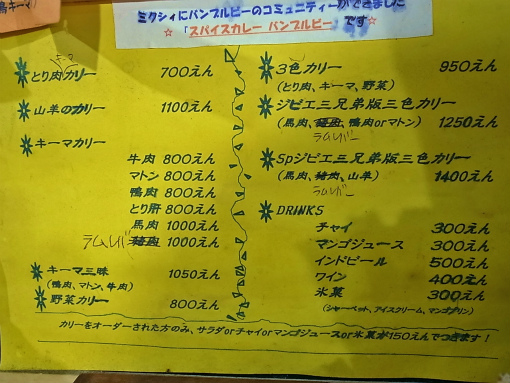 ミクシィにバンブルビーのコミュニティーができました
☆「スパイスカレー バンブルビー」です☆
とり肉カリー 700えん
山羊のカリー 1100えん
キーマカリー
牛肉 800えん
マトン 800えん
鴨肉 800えん
とり肝 800えん
馬肉 1000えん
ラムレバー 1000えん
キーマ三昧 1050えん
(鴨肉、マトン、牛肉)
野菜カリー 800えん
3色カリー 950えん
(とり肉、キーマ、野菜)
ジビエ三兄弟版三色カリー
(馬肉、猪肉、鴨肉orマトン) 1250えん
ラムレバー
Spジビエ三兄弟版三色カリー
(馬肉、猪肉、山羊) 1400えん
ラムレバー
DRINKS
チャイ 300えん
マンゴジュース 300えん
インドビール 500えん
ワイン 400えん
氷菓 300えん
(シャーベット、アイスクリーム、マンゴプリン)
カリーをオーダーされた方のみ、サラダorチャイorマンゴジュースor氷菓が150えんでつきます!